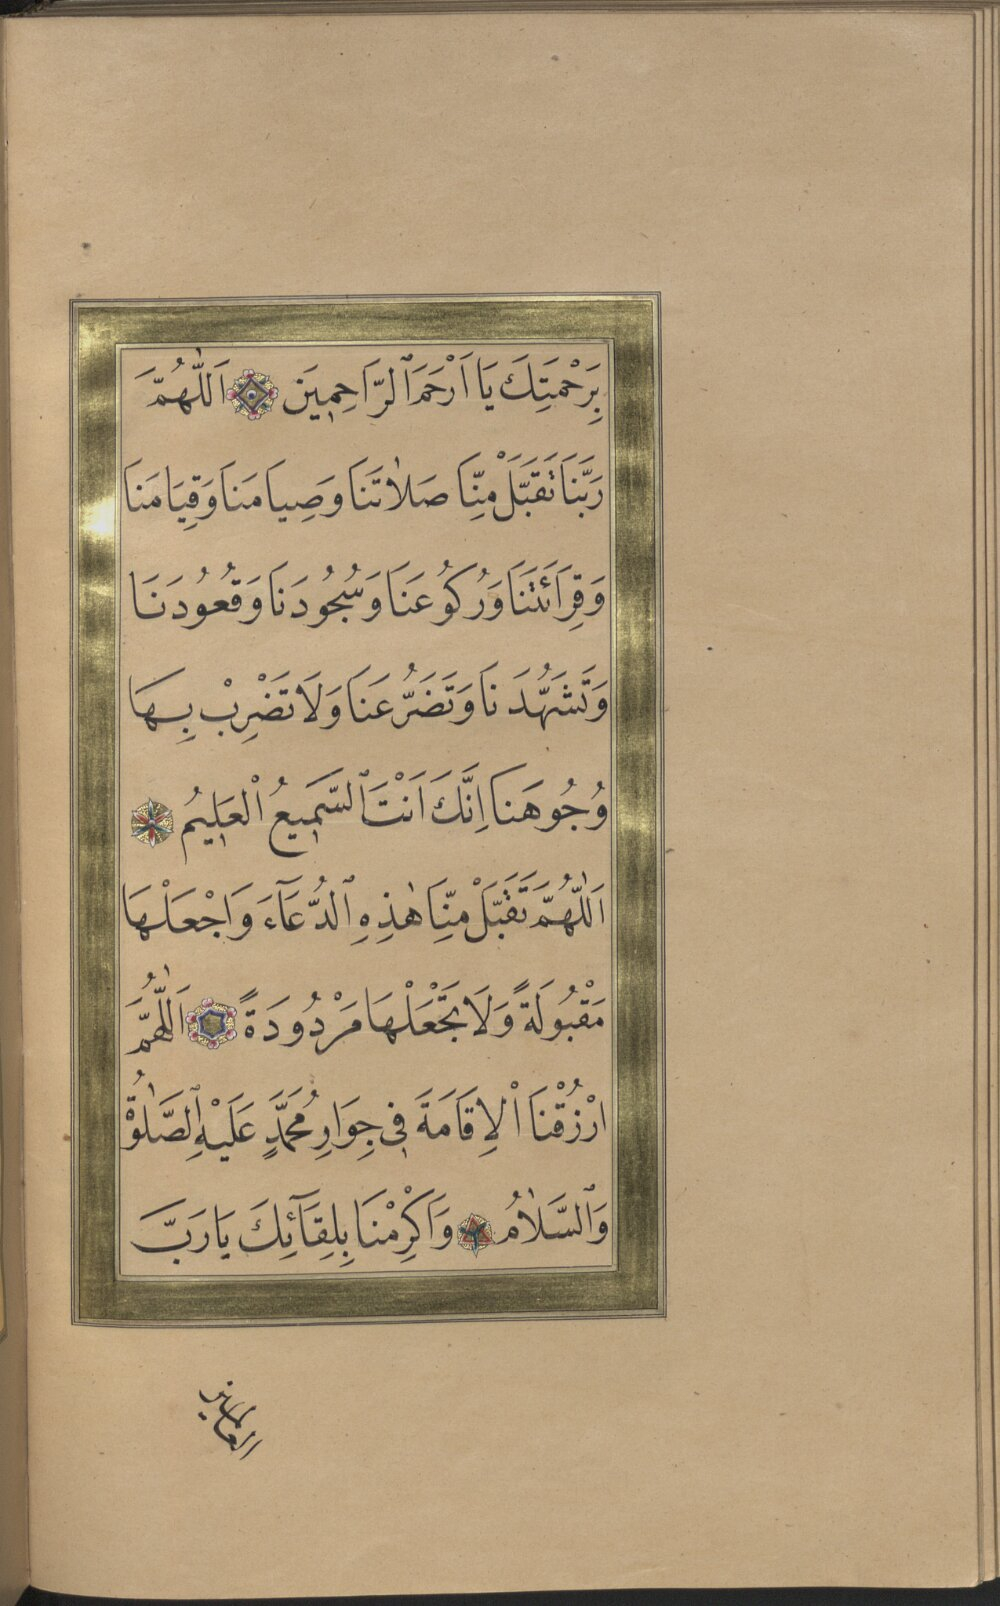 بِرَحْمَتِكَ يَا اَرْحَمَ ٱلرَّاحِمِينَ اَللّٰهُمَّ
رَبَّنَا تَقَبَّلْ مِنَّا صَلَاتَنَا وَصِيَامَنَا وَقِيَامَنَا
وَقِرَائَتَنَا وَرُكُوعَنَا وَسُجُودَنَا وَقُعُودَنَا
وَتَشَهُّدَنَا وَتَضَرُّعَنَا وَلَا تَضْرِبْ بِهَا
وُجُوهَنَا اِنَّكَ اَنْتَ ٱلسَّمِيعُ الْعَلِيمُ
اَللّٰهُمَّ تَقَبَّلْ مِنَّا هٰذِهِ ٱلدُّعَآءَ وَاجْعَلْهَا
مَقْبُولَةً وَلَا تَجْعَلْهَا مَرْدُودَةً اَللّٰهُمَّ
ارْزُقْنَا الْاِقَامَةَ فِي جِوَارِ مُحَمَّدٍ عَلَيْهِ ٱلصَّلٰوةُ
وَٱلسَّلَامُ وَاَكْرِمْنَا بِلِقَآئِكَ يَا رَبَّ
العالمين